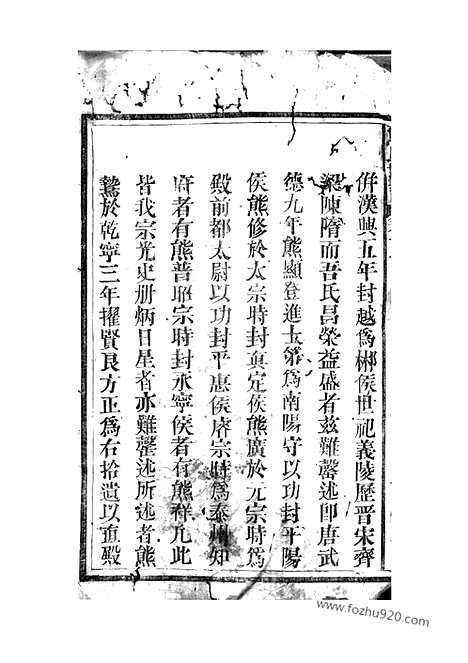 併漢興五年封越爲郴侯世祀義陵歷晋宋齊
梁陳隋而吾氏昌榮益盛者兹難罄述卽唐武
德九年熊顯登進士第爲南陽守以功封平陽
侯熊修於太宗時封真定侯熊廣於元宗時爲
殿前都太尉以功封平惠侯睿宗時爲泰州知
府者有熊普耶宗時封永寧侯者有熊祥凡此
皆我宗光史册炳日星者亦難罄述所述者熊
於乾寧三年擢賢良方正爲右拾遺以重毀
www.fozhu920.com